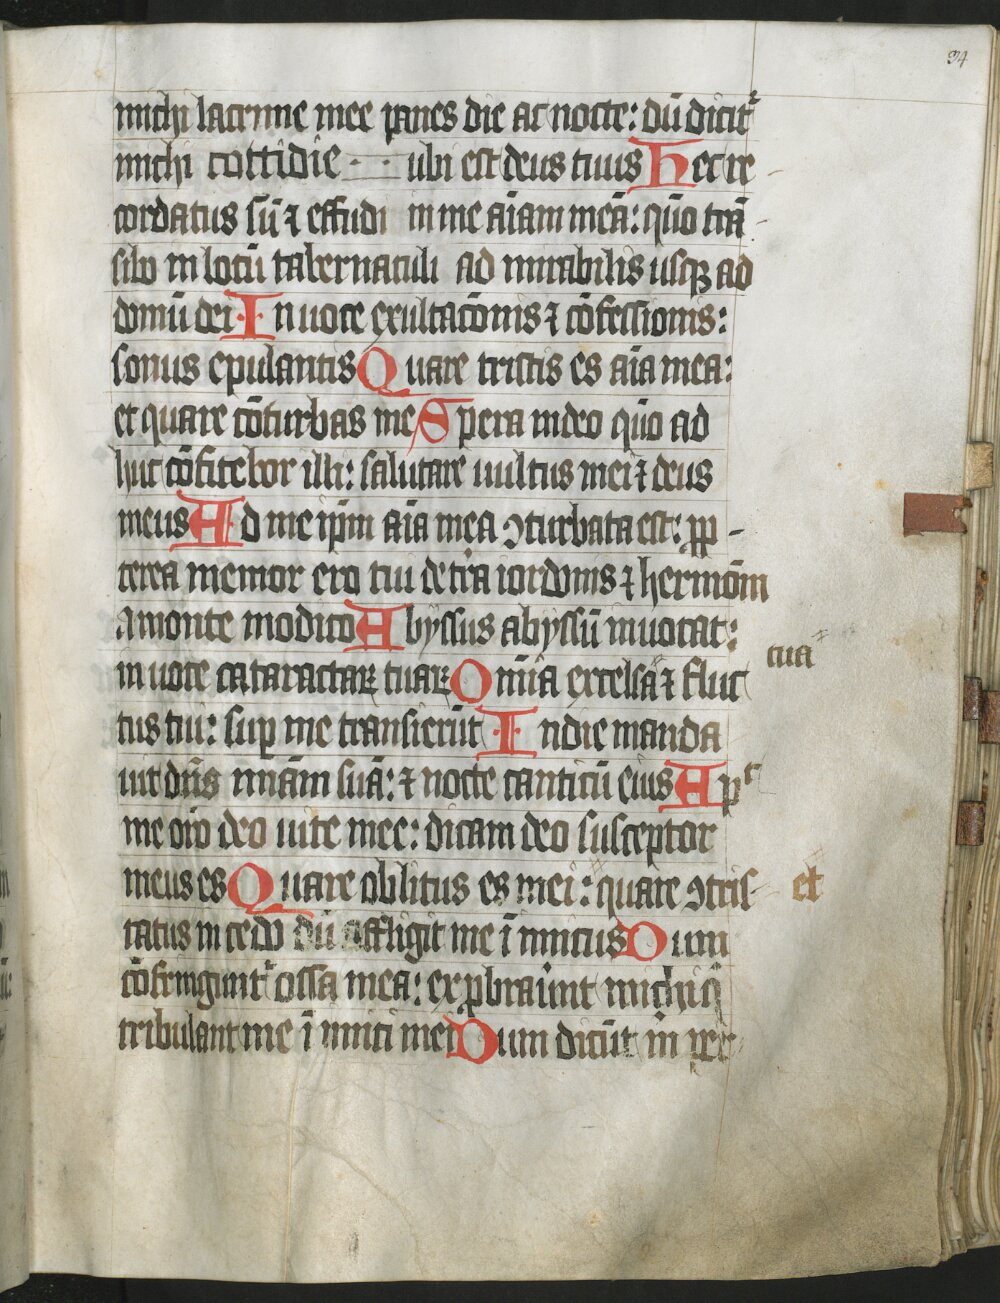 34
michi lacrime mee panes die ac nocte: dū dicit᷑
michi cottidie ubi est deus tuus Hec re
cordatus sū ⁊ effudi in me aīam meā: qūo trā
sibo in locū tabernaculi ad mirabilis usqꝫ ad
domū dei In uoce exultacōnis ⁊ cōfessionis:
sonus epulantis Quare tristis es aīa mea:
et quare cōturbas me Spera in deo qūo ad
huc cōfitebor illi: salutare uultus mei ⁊ deus
meus Ad me ip̄m aīa mea ꝯturbata est: ꝓp
terea memor ero tui de t̄ra iordanis ⁊ hermōim
a monte modico Abyssus abyssū inuocat:
in uoce cataractaꝝ tuaꝝ Om̄ia excelsa ⁊ fluc
tua
tus tui: suꝑ me transierūt In die manda
uit dn̄s mīam suā: ⁊ nocte canticū eius Apᵗ
me or̄o deo uite mee: dicam deo susceptor
meus es Quare oblitus es mei: quare ꝯtris
et
tatus incedo dū affligit me īnimicus Dum
cōfringunt᷑ ossa mea: exꝓbrauīnt michi q̄
tribulant me īnimici mei Dum dicūt in